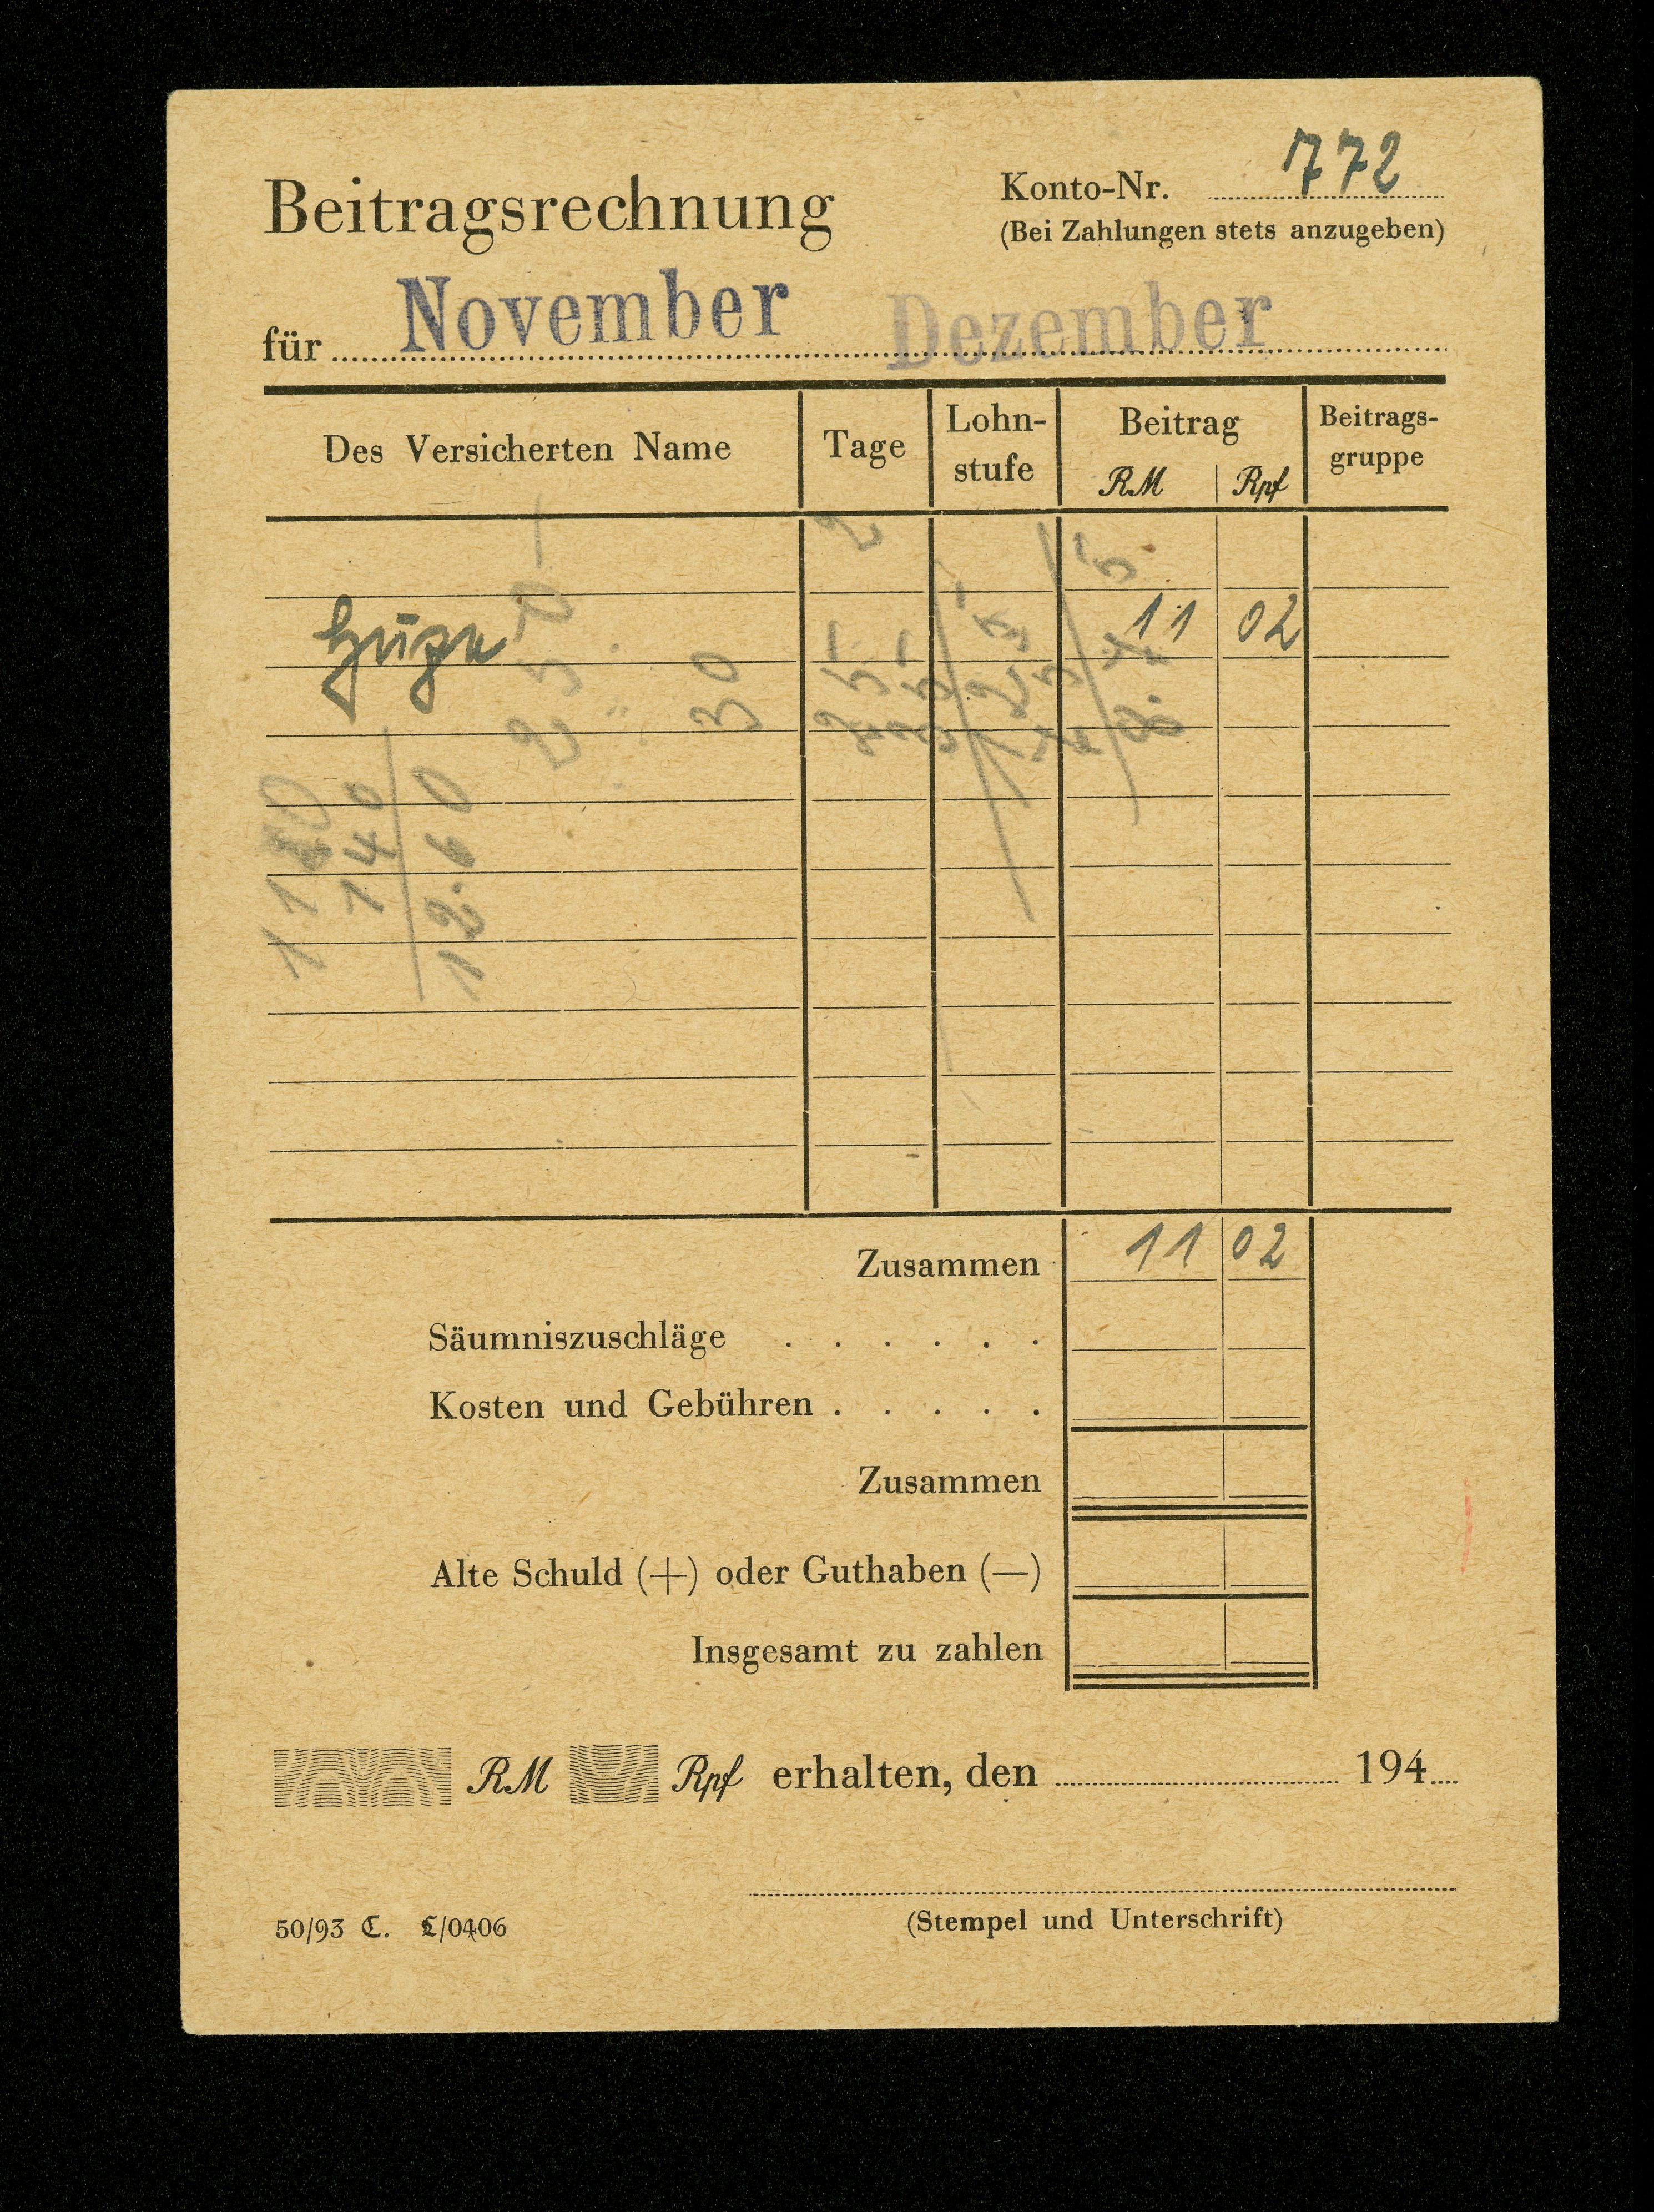 Beitragsrechnung
Konto-Nr. 772
(Bei Zahlungen stets anzugeben)
für November Dezember
Des Versicherten Name
Tage
Lohn-
stufe
Beitrag
RM Rpf
Beitrags-
gruppe
11 02
30
1 1 2 0
1 4 0
12.60
Zusammen 11 02
Säumniszuschläge . . . . . .
Kosten und Gebühren . . . . .
Zusammen
Alte Schuld (+) oder Guthaben (—)
Insgesamt zu zahlen
RM Rpf erhalten, den 194
(Stempel und Unterschrift)
50/93 C. L/0406